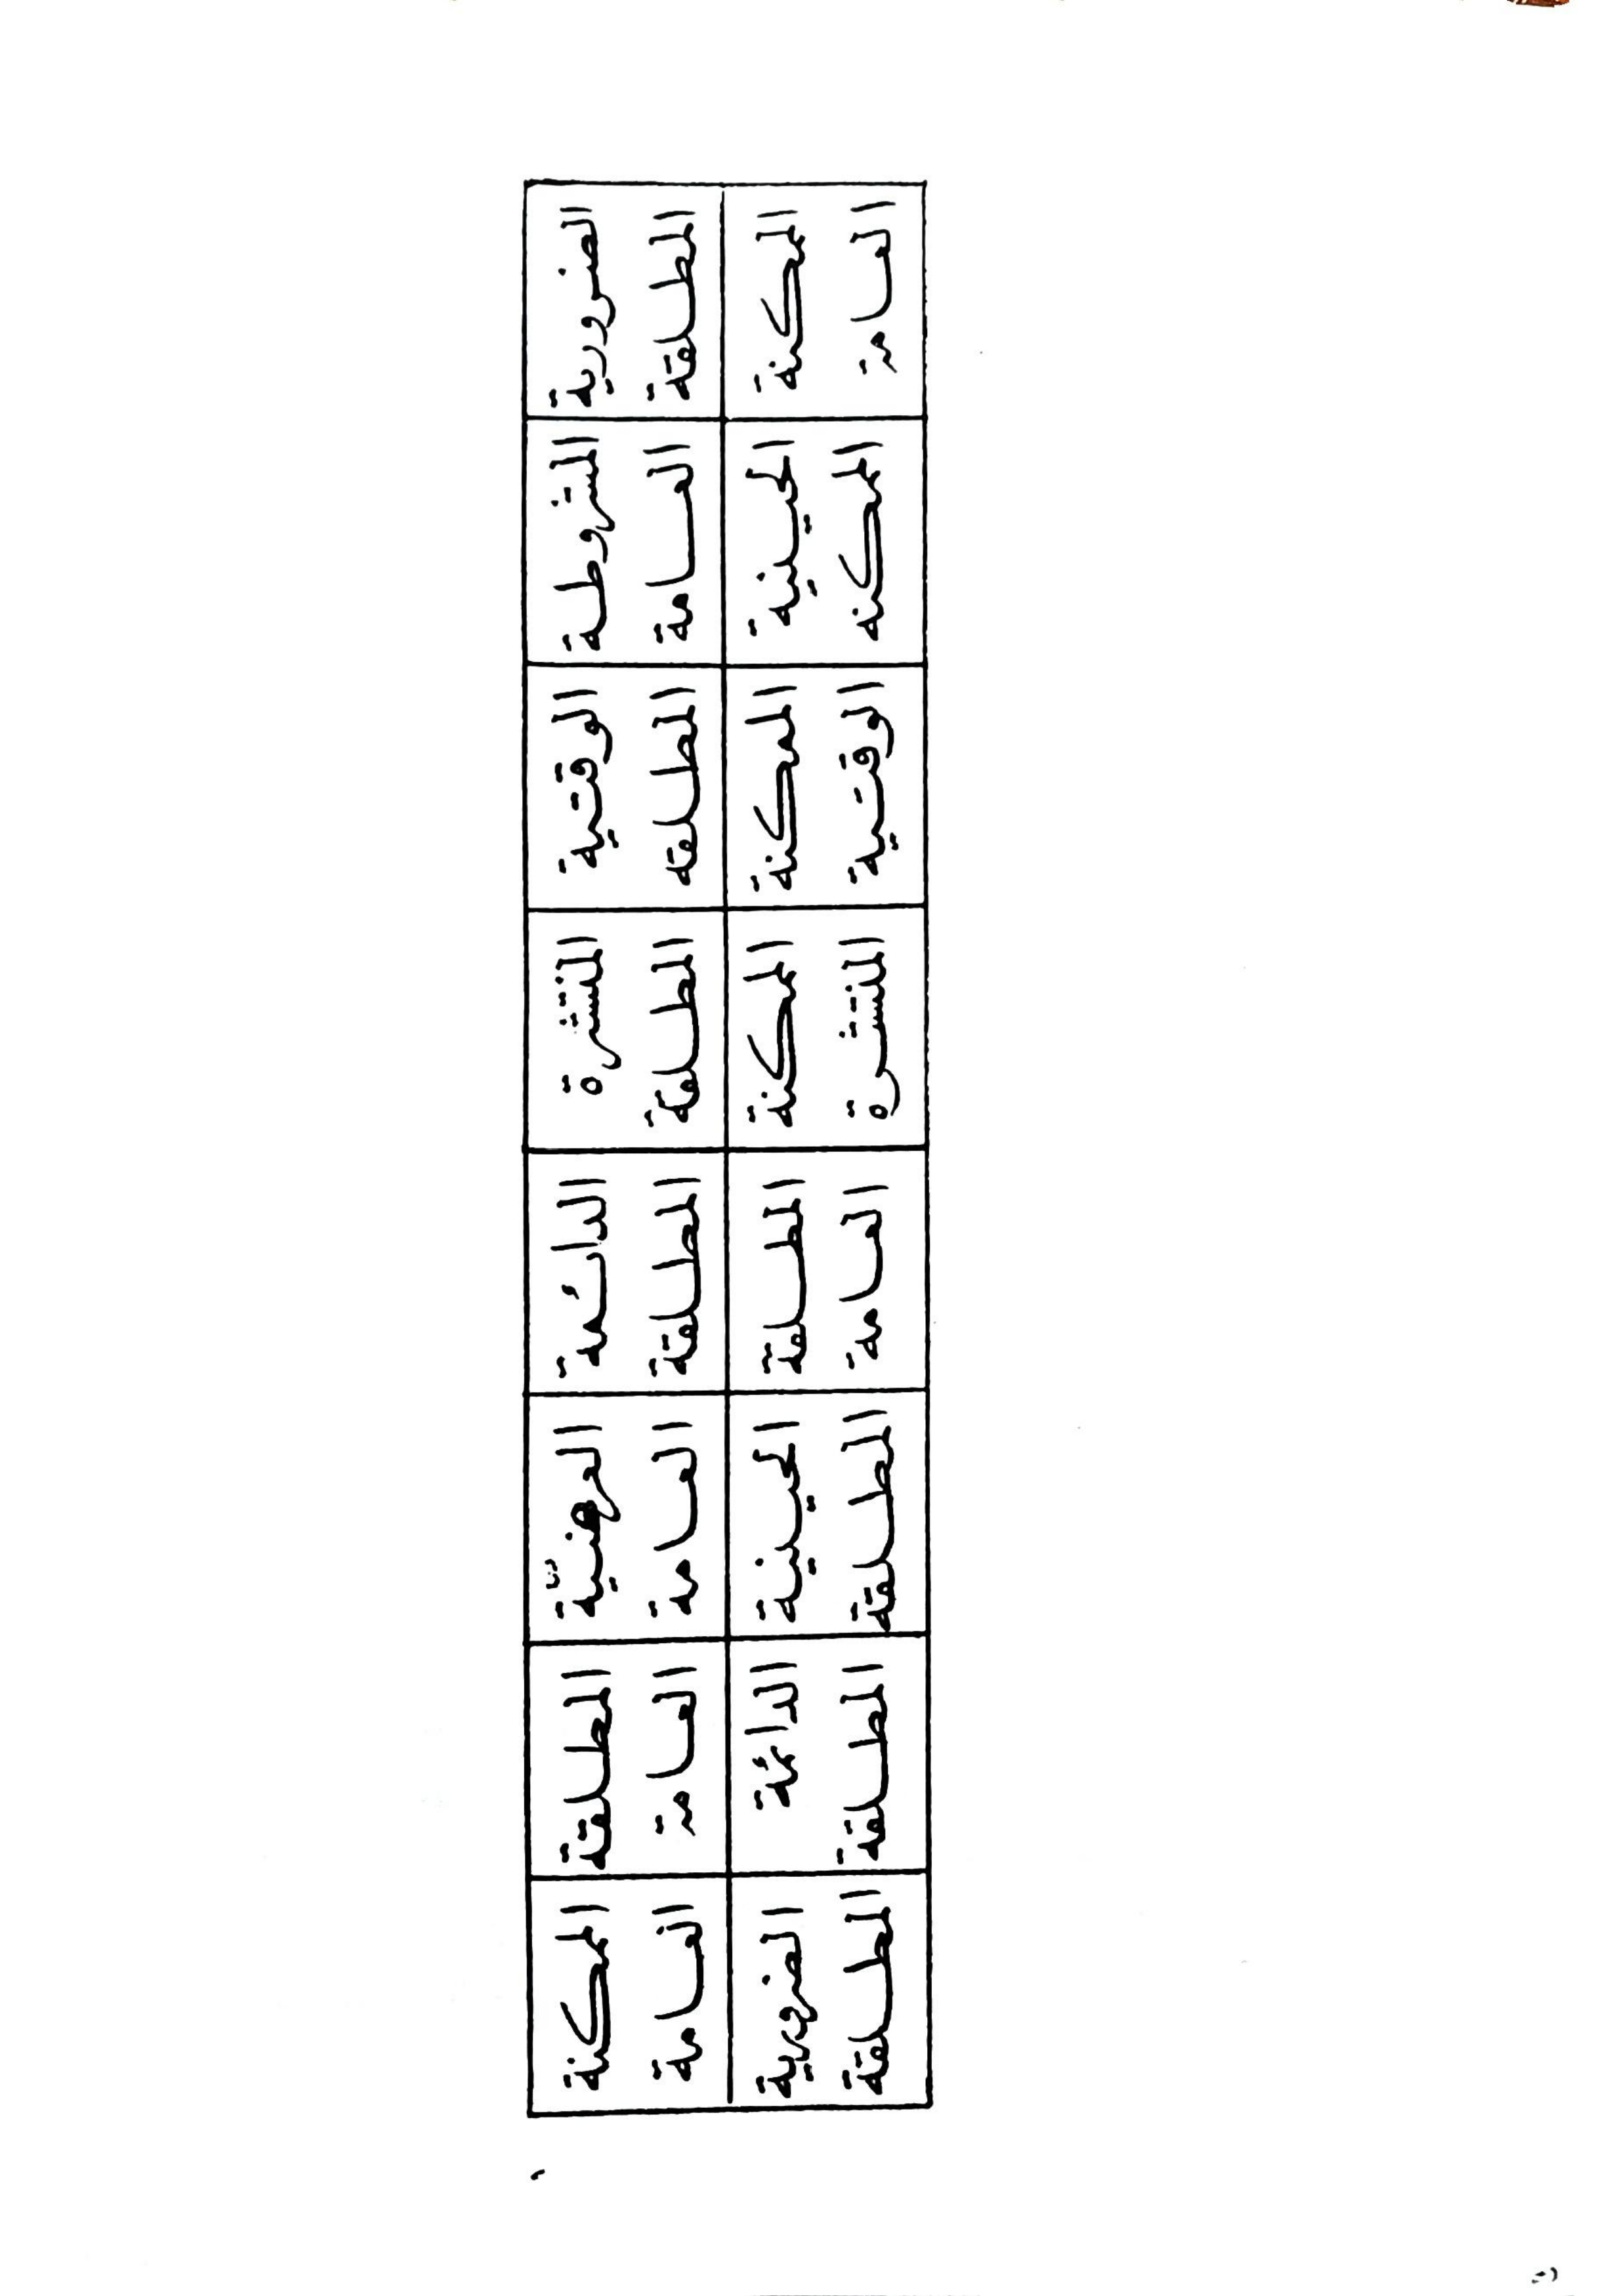 الضرورية
المطلقة
المشروطة
العامة
الوقتية
المطلقه
المنتشرة
المطلقة
الدائمة
المطلقة
العرفنيّة
العامة
المطلقة
العامة
الممكنة
العامة
الممكنة
العامة
الحينية
الممكنه
الممكنة
الوقتية
الممكنة
المنتشرة
المطلقة
العامة
الحينية
المطلقة
الدائمة
المطلقة
الضرورية
المطلقة